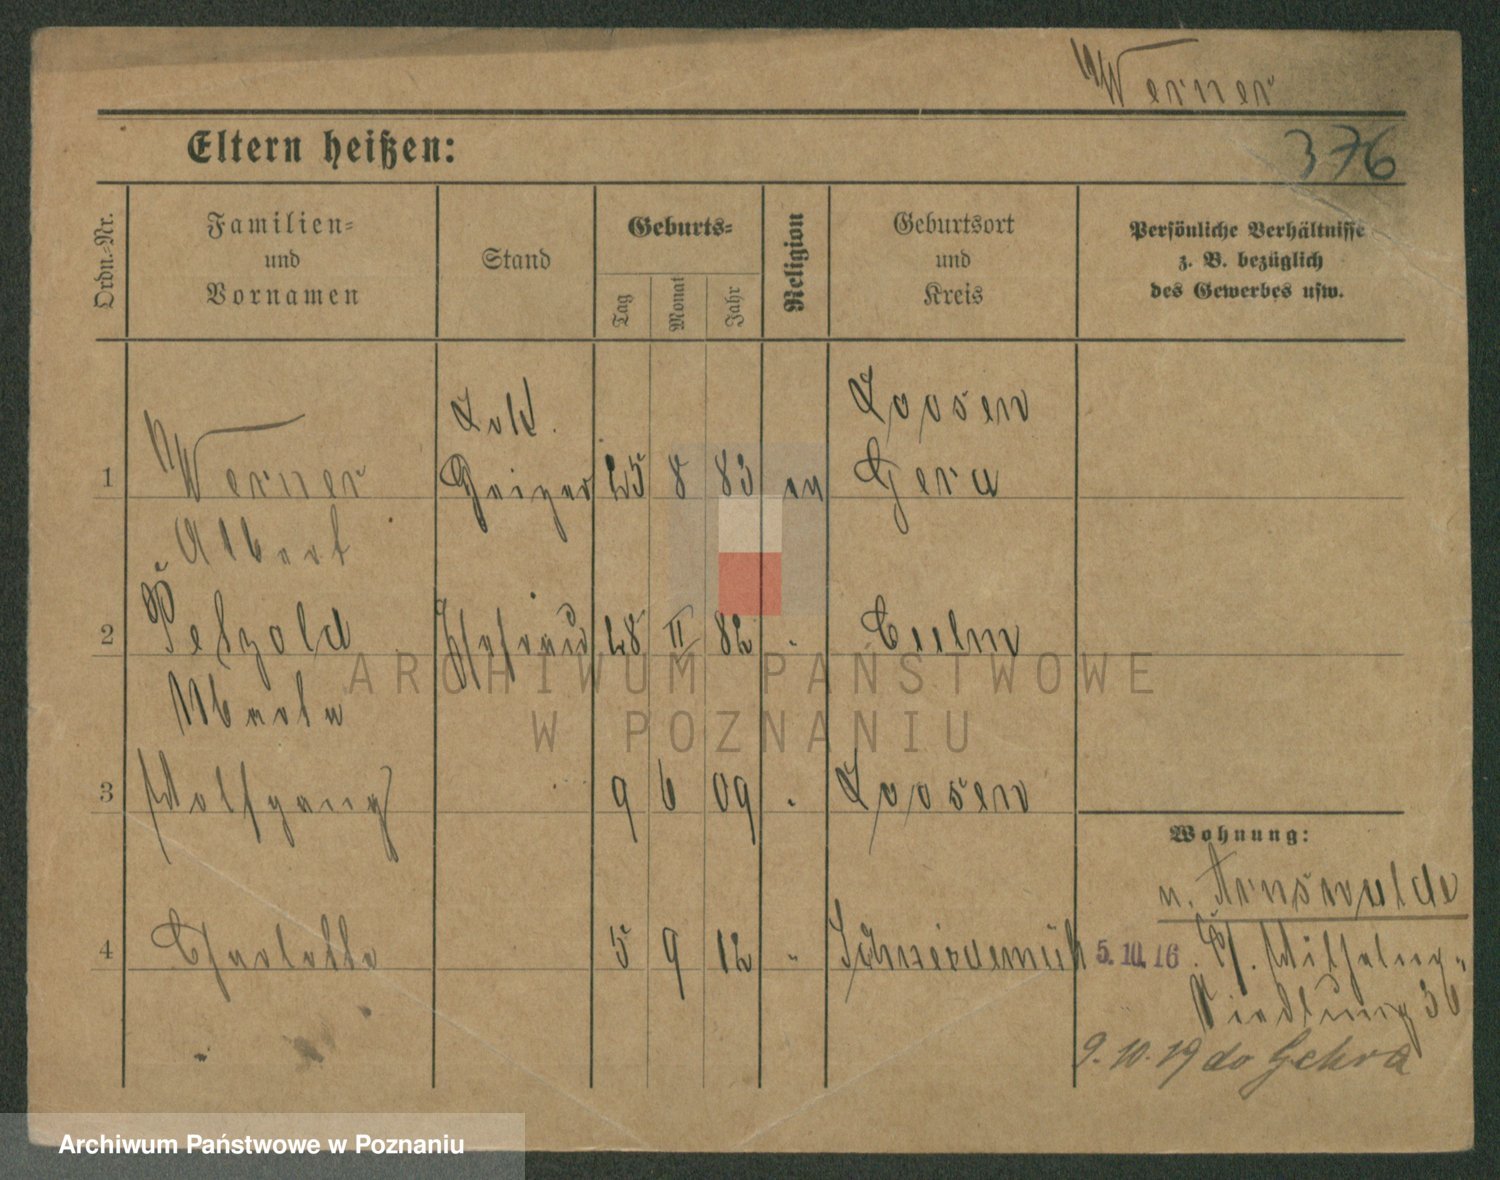 Werner
376
Eltern heißen:
Ordn.-Nr.
Familien-
und
Vornamen
Stand
Geburts-
Tag
Monat
Jahr
Religion
Geburtsort
und
Kreis
Persönliche Verhältnisse
z. B. bezüglich
des Gewerbes usw.
Lok.
Loosen
1 Werner Heizer 25 8 83 ev Gera
Albert
2 Petzold Ehefrau 28 II 82 " Culm
Martha
3 Wolfgang 9 6 09 " Loosen
Wohnung:
n. Arnswalde
4 Charlotte 5 9 12 " Schneidemühl 5. 10. 16.
Siedlung 36
9. 10. 19 do
ARCHIWUM PAŃSTWOWE
W POZNANIU
Archiwum Państwowe w Poznaniu